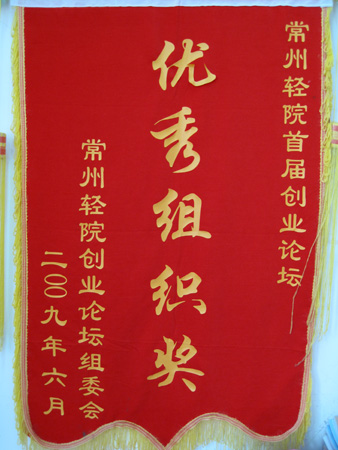 常州轻院首届创业论坛
优秀组织奖
常州轻院创业论坛组委会
二〇〇九年六月